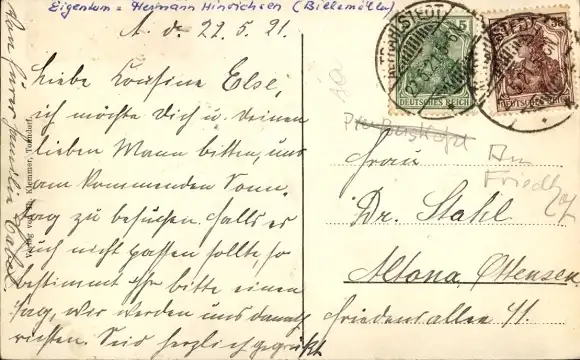 Eigentum = Hermann Hinrichsen (Billemöller)
A. d. 22. 5. 21.
Liebe Kousine Else,
ich möchte dich u. deinen
lieben Mann bitten, uns
am kommenden Sonn-
tag zu besuchen. Falls es
euch nicht passen sollte, so
bestimmt ihr bitte einen
Tag, wir werden uns danach
richten. Seid herzlich gegrüßt
Verlag von Klemmer, Tonndorf.
5
DEUTSCHES REICH
DEUTSCHES REICH
22.5.21
Frau
Am
Friedh
Dr. Stahl
Altona, Ottensen
Friedensallee 41.